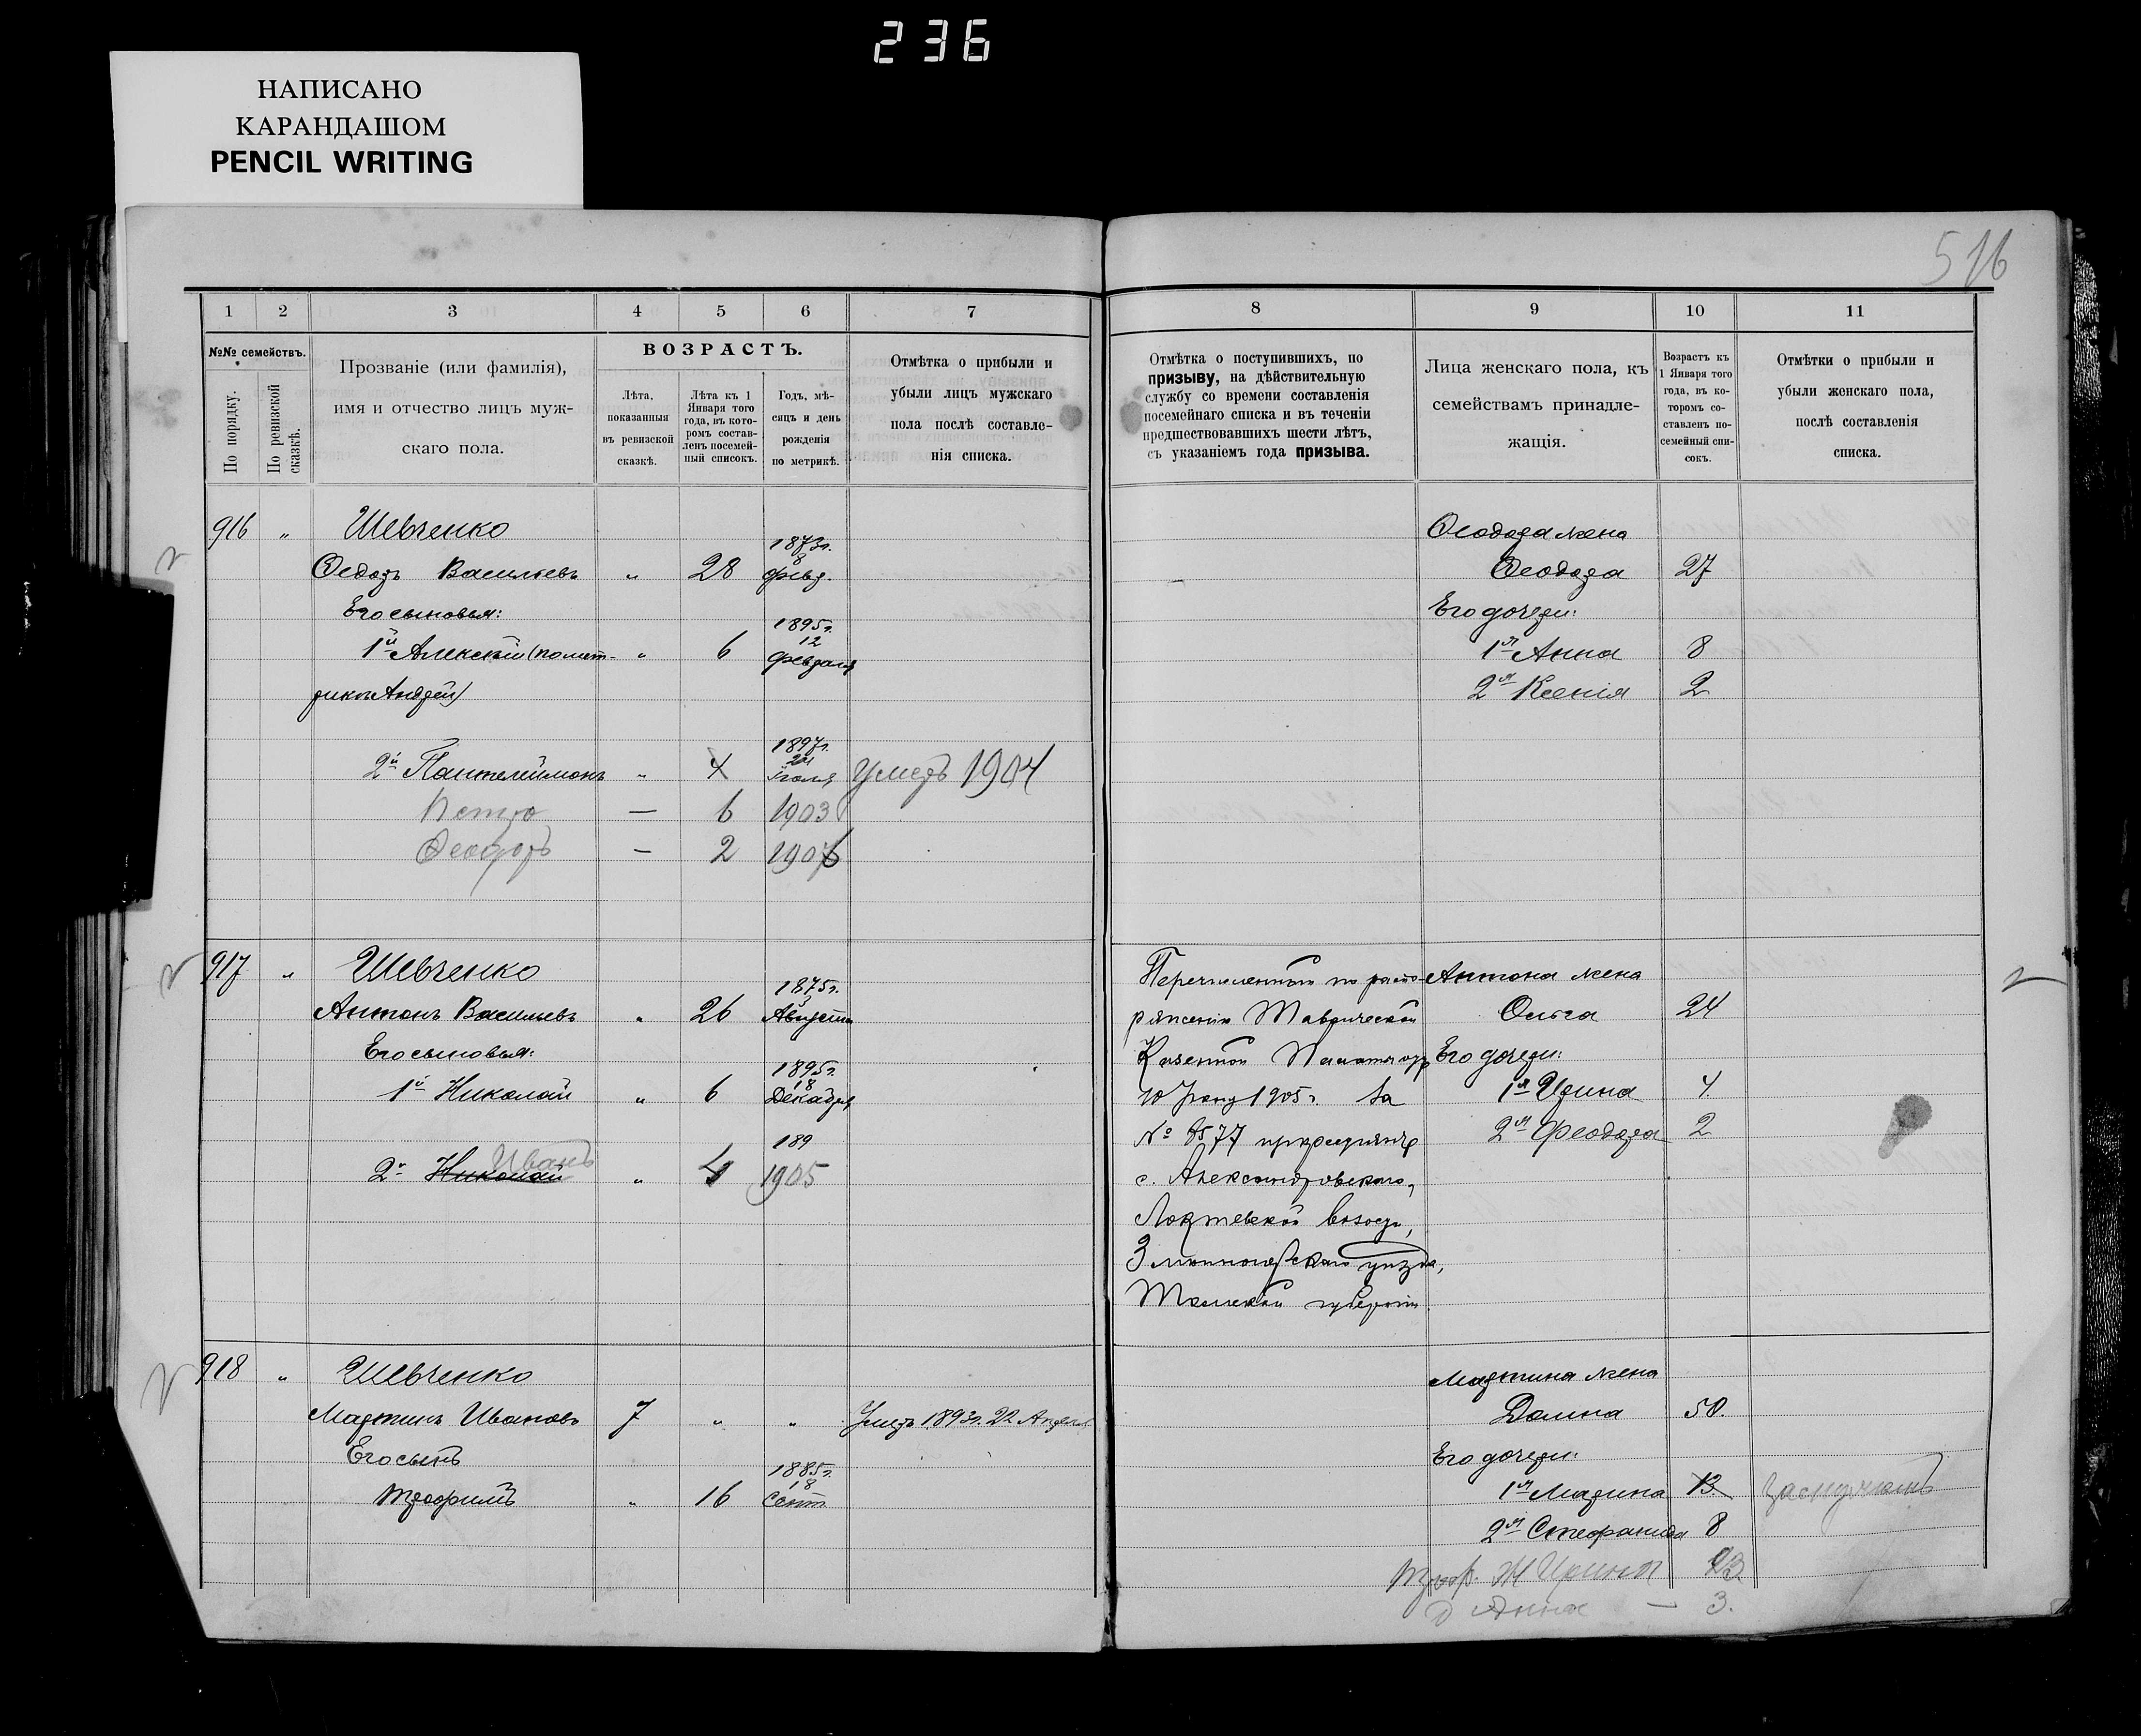 236
НАПИСАНО
КАРАНДАШОМ
PENCIL WRITING
516
1 2 3 4 5 6 7
№№ семействъ.
По порядку.
По ревизской сказкѣ.
Прозваніе (или фамилія),
имя и отчество лицъ муж-
скаго пола.
ВОЗРАСТЪ.
Лѣта,
показанныя
въ ревизской
сказкѣ.
Лѣта къ 1
Января того
года, въ кото-
ромъ состав-
ленъ посемей-
ный списокъ.
Годъ, мѣ-
сяцъ и день
рожденія
по метрикѣ.
Отмѣтка о прибыли и
убыли лицъ мужскаго
пола послѣ составле-
нія списка.
916 " Шевченко
1873г.
8
Ѳедоръ Васильевъ " 28 февр.
Его сыновья:
1895г.
12
1й Алексѣй (помет- " 6 февраля
рикѣ Андрей)
1897г.
2й Пантелеймонъ " 4 Іюля умеръ 1904
Петро — 6 1903
Ѳеодоръ — 2 1906
917 " Шевченко
1875г.
3
Антонъ Васильевъ " 26 Августа
Его сыновья:
1895г.
18
1й Николай " 6 Декабря
189
Иванъ
2й Николай " 1905
918 " Шевченко
Мартинъ Ивановъ 7 " " Умеръ 1893г. 22 Апреля
Его сынъ
1885г.
18
Трофимъ " 16 Сент.
8 9 10 11
Отмѣтка о поступившихъ, по
призыву, на дѣйствительную
службу со времени составленія
посемейнаго списка и въ теченіи
предшествовавшихъ шести лѣтъ,
съ указаніемъ года призыва.
Лица женскаго пола, къ
семействамъ принадле-
жащія.
Возрастъ къ
1 Января того
года, въ ко-
торомъ со-
ставленъ по-
семейный спи-
сокъ.
Отмѣтки о прибыли и
убыли женскаго пола,
послѣ составленія
списка.
Ѳеодора жена
Ѳеодора 27
Его дочери:
1я Анна 8
2я Ксенія 2
Перечисленъ по распо- Антона жена
ряженію Таврической Ольга 24
Казенной Палаты отъ Его дочери:
10 1905г. за 1я Ирина 4
№ 8577 2я Феодора 2
с. Александровскаго,
Локтевской волости,
Змѣиногорскаго уѣзда,
Томской губерніи.
Мартина жена
Домна 50.
Его дочери:
1я Марина 13. замужемъ
2я Стефанида 8
Троф. ж Ирина 23
д Анна — 3.